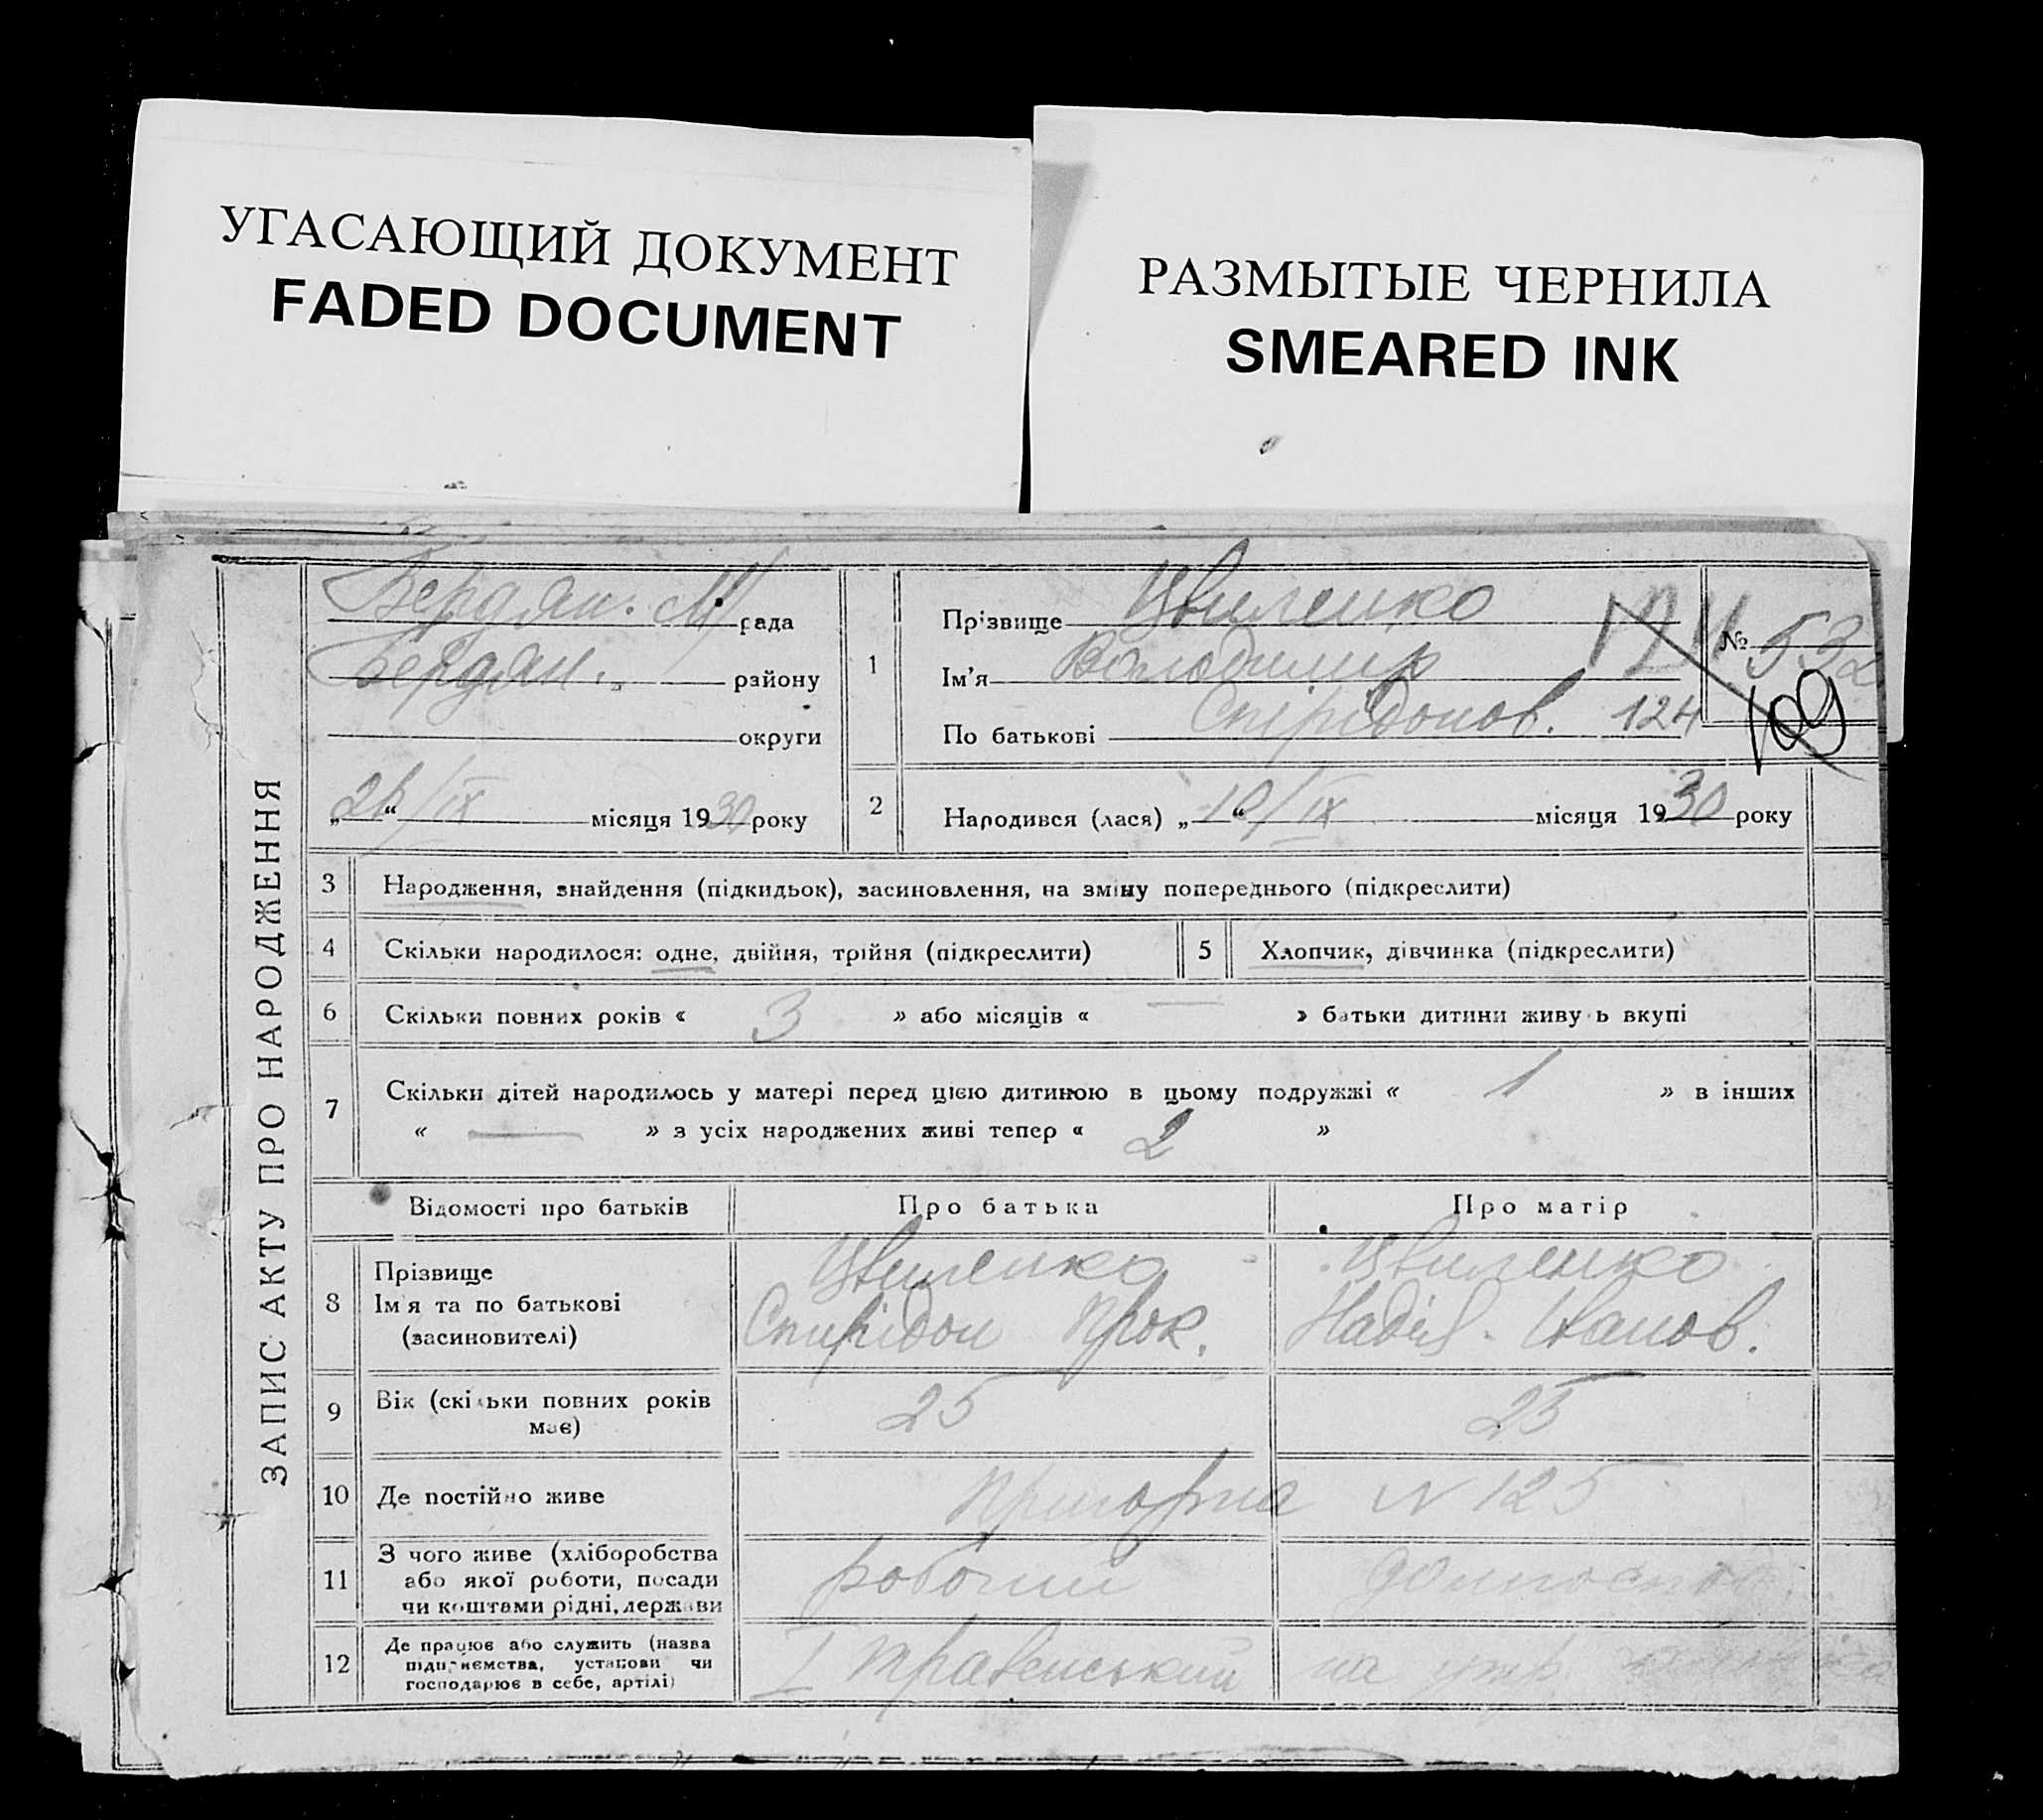 УГАСАЮЩИЙ ДОКУМЕНТ
FADED DOCUMENT
РАЗМЫТЫЕ ЧЕРНИЛА
SMEARED INK
ЗАПИС АКТУ ПРО НАРОДЖЕННЯ
Бердян. М/рада
Бердян. району
округи
„26“/IX місяця 1930 року
1
Прізвище Цвиленко
Ім'я Володимир
По батькові Спірідонов. 124
№ 532
109
2 Народився (лася) „10“/IX місяця 1930 року
3 Народження, знайдення (підкидьок), засиновлення, на зміну попереднього (підкреслити)
4 Скільки народилося: одне, двійня, трійня (підкреслити)
5 Хлопчик, дівчинка (підкреслити)
6 Скільки повних років « 3 » або місяців « — » батьки дитини живу ь вкупі
7 Скільки дітей народилось у матері перед цією дитиною в цьому подружжі « 1 » в інших
« — » з усіх народжених живі тепер « 2 »
Відомості про батьків Про батька Про матір
8 Прізвище Цвиленко Цвиленко
Ім'я та по батькові Спирідон Прок. Надія Иванов.
(засиновителі)
9 Вік (скільки повних років 25 25
має)
10 Де постійно живе Пригорна N 125
11 З чого живе (хліборобства робочий
або якої роботи, посади
чи коштами рідні, держави
12 Де працює або служить (назва I Травенський на утр.
підприємства, установи чи
господарює в себе, артілі)